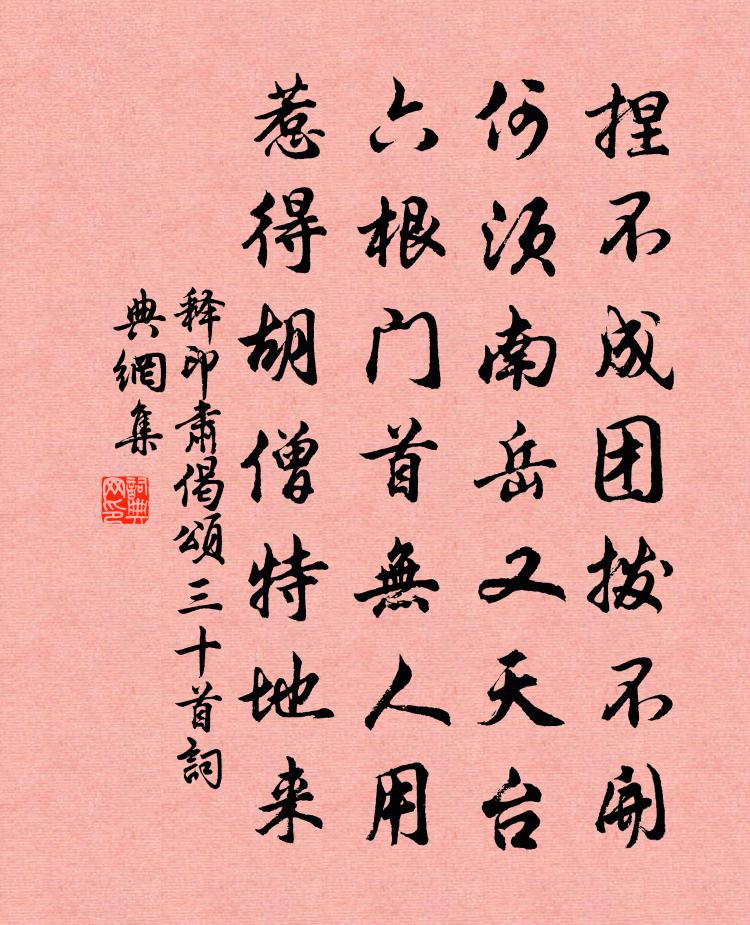 捏不成团拨不开
何须南岳又天台
六根门首無人用
惹得胡僧特地来
释印肃偈頌三十首詞
典網集
詞典
网印